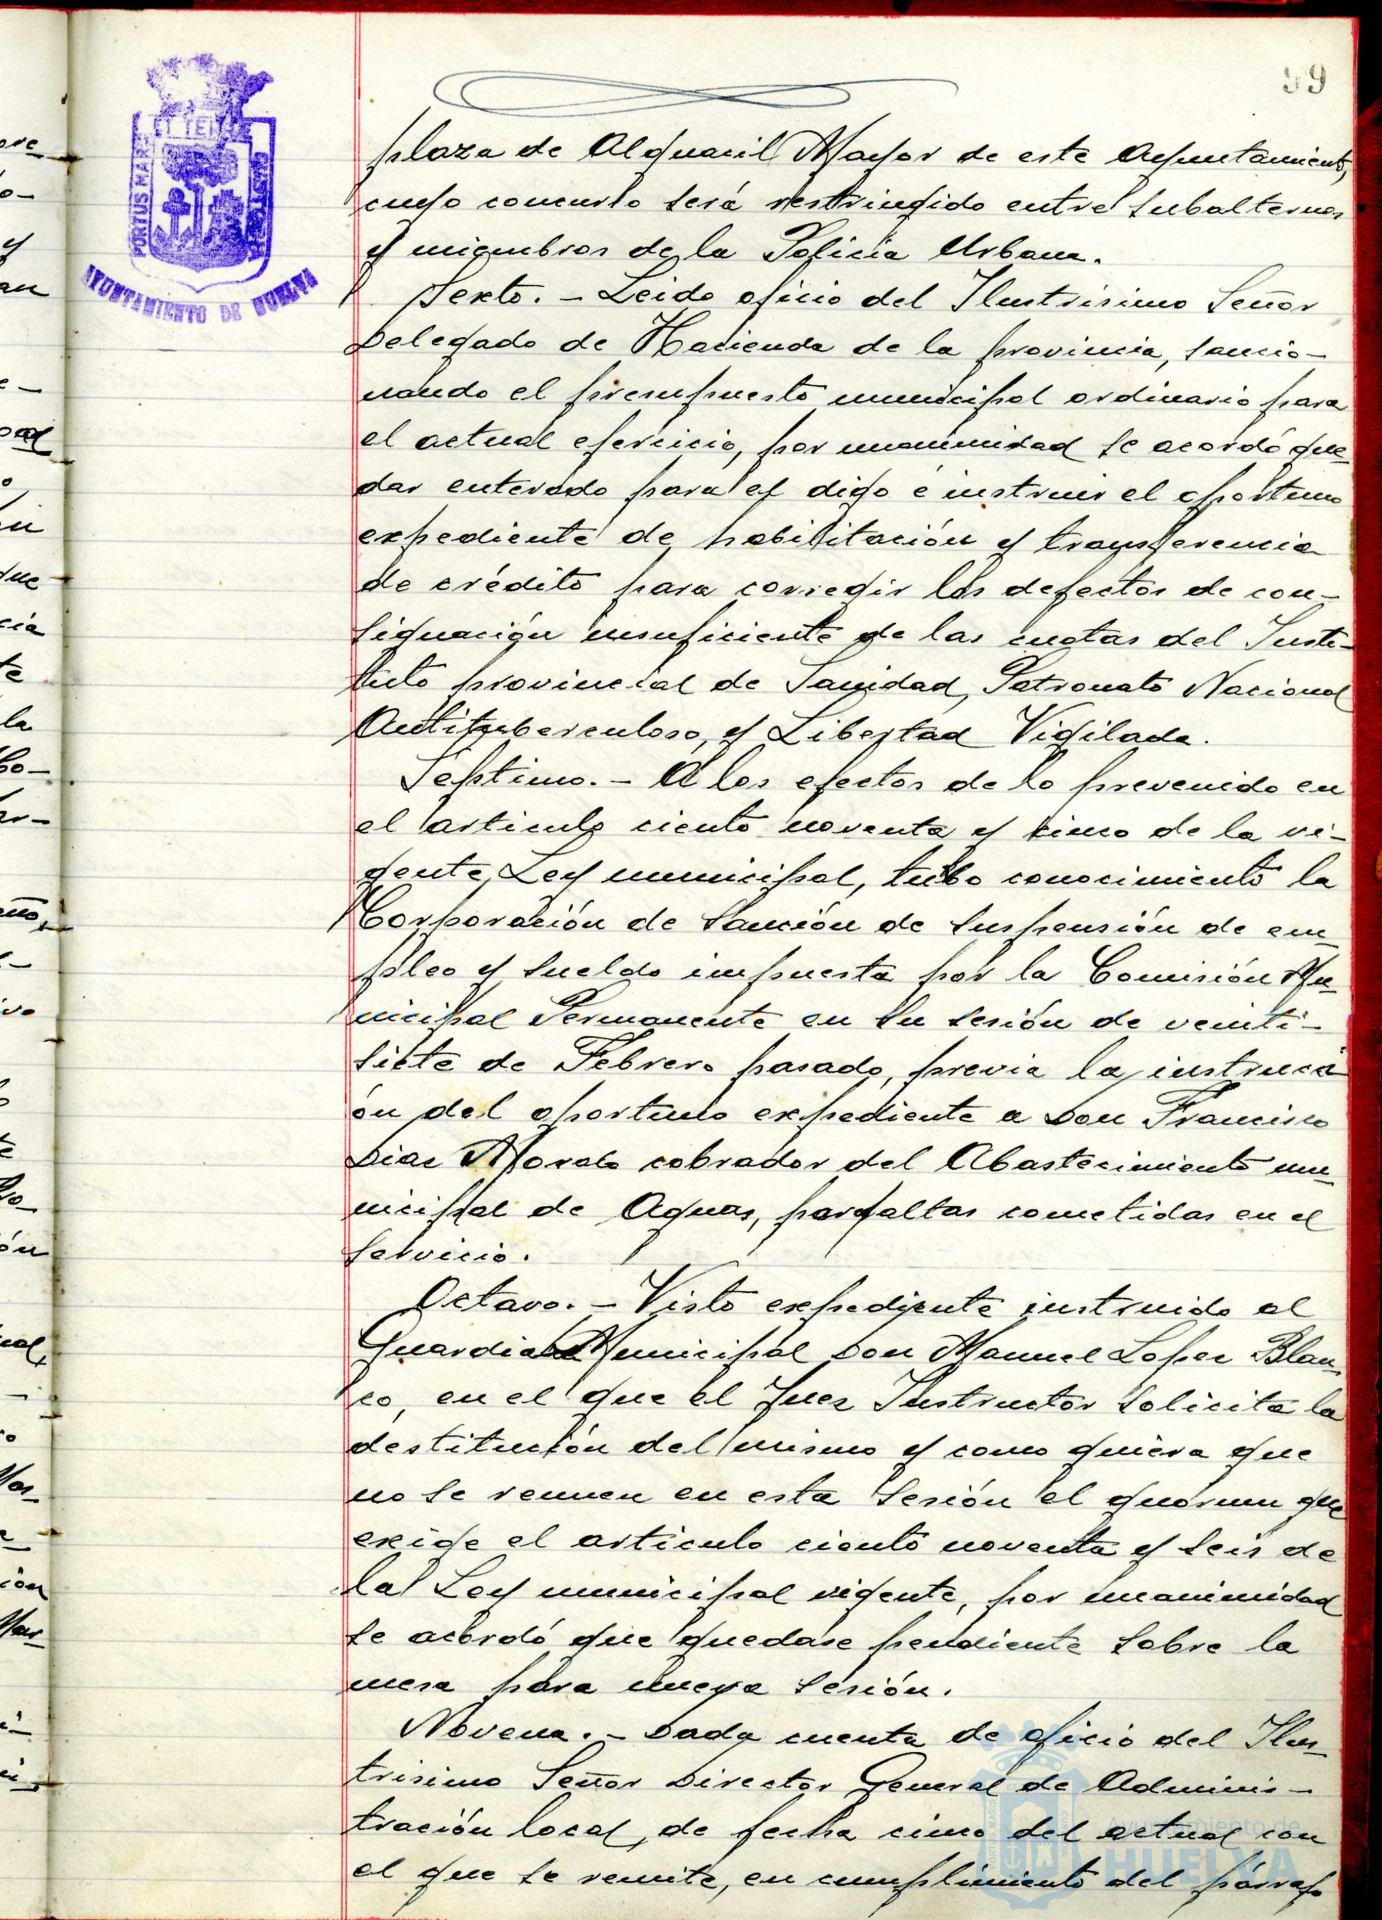 59
PORTUS MARIS ET TERRE CUSTODIA
AYUNTAMIENTO DE HUELVA
plaza de Alguacil Mayor de este Ayuntamiento,
cuyo concurso será restringido entre Subalternos
y miembros de la Policia Urbana.
Sexto. - Leido oficio del Ilustrisimo Señor
Delegado de Hacienda de la provincia, sancio-
nando el presupuesto municipal ordinario para
el actual ejercicio, por unanimidad se acordó que-
dar enterado para el digo é instruir el oportuno
expediente de habilitación y transferencia
de crédito para corregir los defectos de con-
signación insuficiente de las cuotas del Insti-
tuto provincial de Sanidad, Patronato Nacional
Antituberculoso, y Libertad Vigilada.
Septimo. - A los efectos de lo prevenido en
el articulo ciento noventa y cinco de la vi-
gente Ley municipal, tubo conocimiento la
Corporación de Sanción de suspensión de em-
pleo y sueldo impuesta por la Comisión Mu-
nicipal Permanente en su sesión de veinti-
siete de Febrero pasado, previa la instrucci-
ón del oportuno expediente a Don Francisco
Diaz cobrador del Abastecimiento mu-
nicipal de Aguas, por faltas cometidas en el
servicio.
Octavo. - Visto expediente instruido al
Guardia Municipal Don Manuel Lopez Blan-
co, en el que el Juez Instructor solicita la
destitución del mismo y como quiera que
no se reunen en esta sesión el quórum que
exige el articulo ciento noventa y seis de
la Ley municipal vigente, por unanimidad
se acordó que quedase pendiente sobre la
mesa para nueva sesión.
Novena. - Dada cuenta de oficio del Ilus-
trisimo Señor Director General de Adminis-
tración local, de fecha cinco del actual con
el que se remite, en cumplimiento del párrafo
Ayuntamiento de
HUELVA